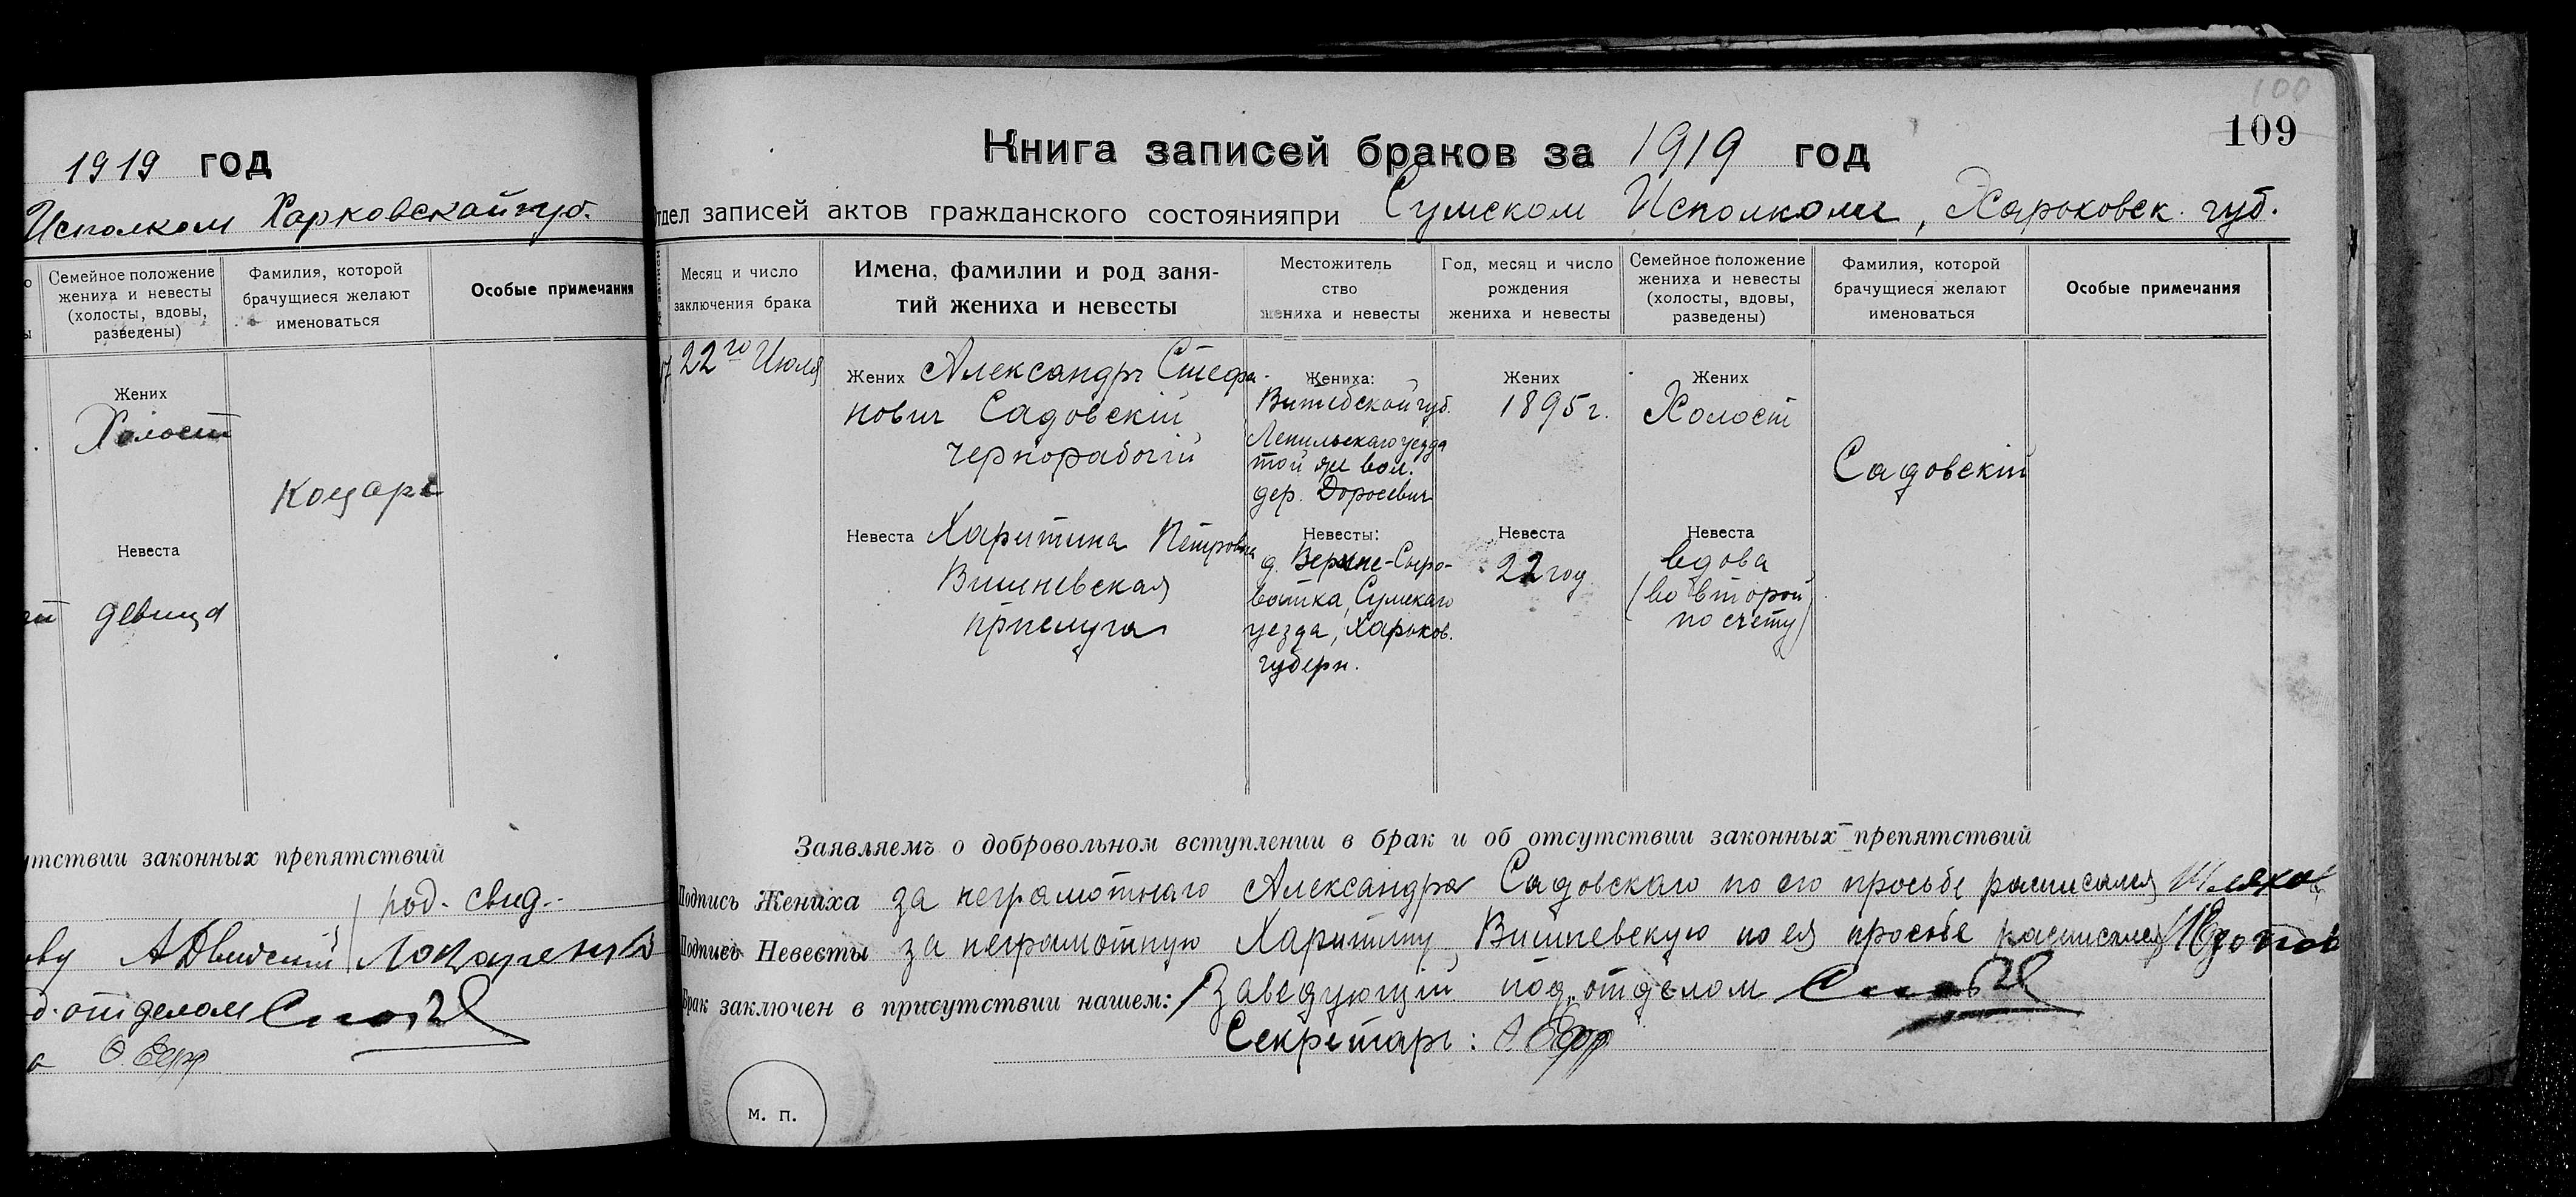 1919 год
Исполком Харковской губ.
Семейное положение
жениха и невесты
(холосты, вдовы,
разведены)
Фамилия, которой
брачущиеся желают
именоваться
Особые примечания
Жених
Холост
Коцарь
Невеста
девица
тствии законных препятствий
род. свид.
отделом
100
109
Книга записей браков за 1919 год
Отдел записей актов гражданского состояния при Сумском Исполкоме, Харьковск. губ.
Месяц и число
заключения брака
Имена, фамилии и род заня-
тий жениха и невесты
Местожитель
ство
жениха и невесты
Год, месяц и число
рождения
жениха и невесты
Семейное положение
жениха и невесты
(холосты, вдовы,
разведены)
Фамилия, которой
брачущиеся желают
именоваться
Особые примечания
22го Июля
Жених Александръ Стефа-
новичъ Садовскій
чернорабочій
Жениха:
Витебской губ.
Лепильскаго уезда
той же вол.
дер. Доросевич
Жених
1895 г.
Жених
Холост
Садовскій
Невеста Харитина Петровна
Вишневская
прислуга
Невесты:
д. Верхне-Сыро-
ватка, Сумскаго
уезда, Харьков.
губерн.
Невеста
22 год
Невеста
вдова
(во второй
по счету)
Заявляемъ о добровольном вступлении в брак и об отсутствии законных препятствий
Подпись Жениха за неграмотнаго Александра Садовскаго по его просьбе расписался
Подпись Невесты за неграмотную Харитину Вишневскую по ея просьбе расписался
Брак заключен в присутствии нашем: Заведующій под. отделом
Секретарь:
м. п.